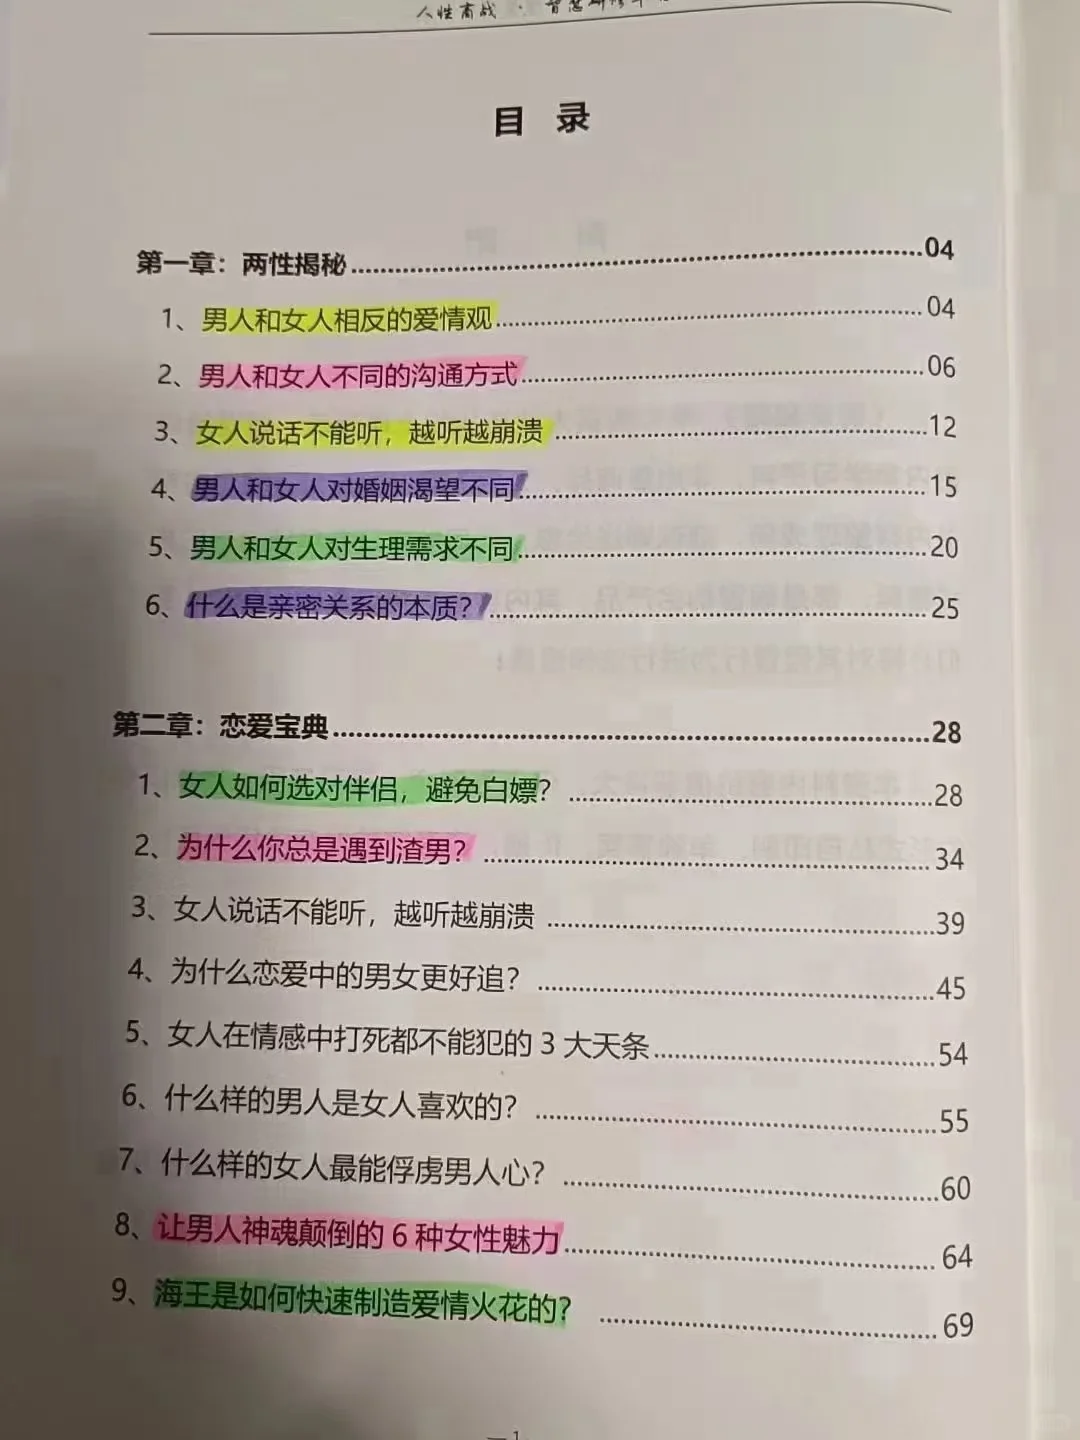 人性商战 · 智慧研修
目 录
第一章：两性揭秘……04
1、男人和女人相反的爱情观……04
2、男人和女人不同的沟通方式……06
3、女人说话不能听，越听越崩溃……12
4、男人和女人对婚姻渴望不同……15
5、男人和女人对生理需求不同……20
6、什么是亲密关系的本质？……25
第二章：恋爱宝典……28
1、女人如何选对伴侣，避免白嫖？……28
2、为什么你总是遇到渣男？……34
3、女人说话不能听，越听越崩溃……39
4、为什么恋爱中的男女更好追？……45
5、女人在情感中打死都不能犯的 3 大天条……54
6、什么样的男人是女人喜欢的？……55
7、什么样的女人最能俘虏男人心？……60
8、让男人神魂颠倒的 6 种女性魅力……64
9、海王是如何快速制造爱情火花的？……69
— 1